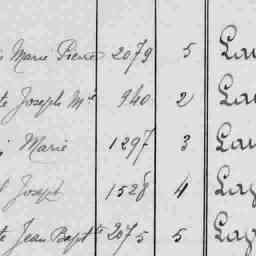 Marie Pierre 2079 5 Lau
te Joseph Mie 940 2 Lau
Marie 1297 3 Lau
l Joseph 1528 4 Lag
te Jean Bapte 2075 5 Lag